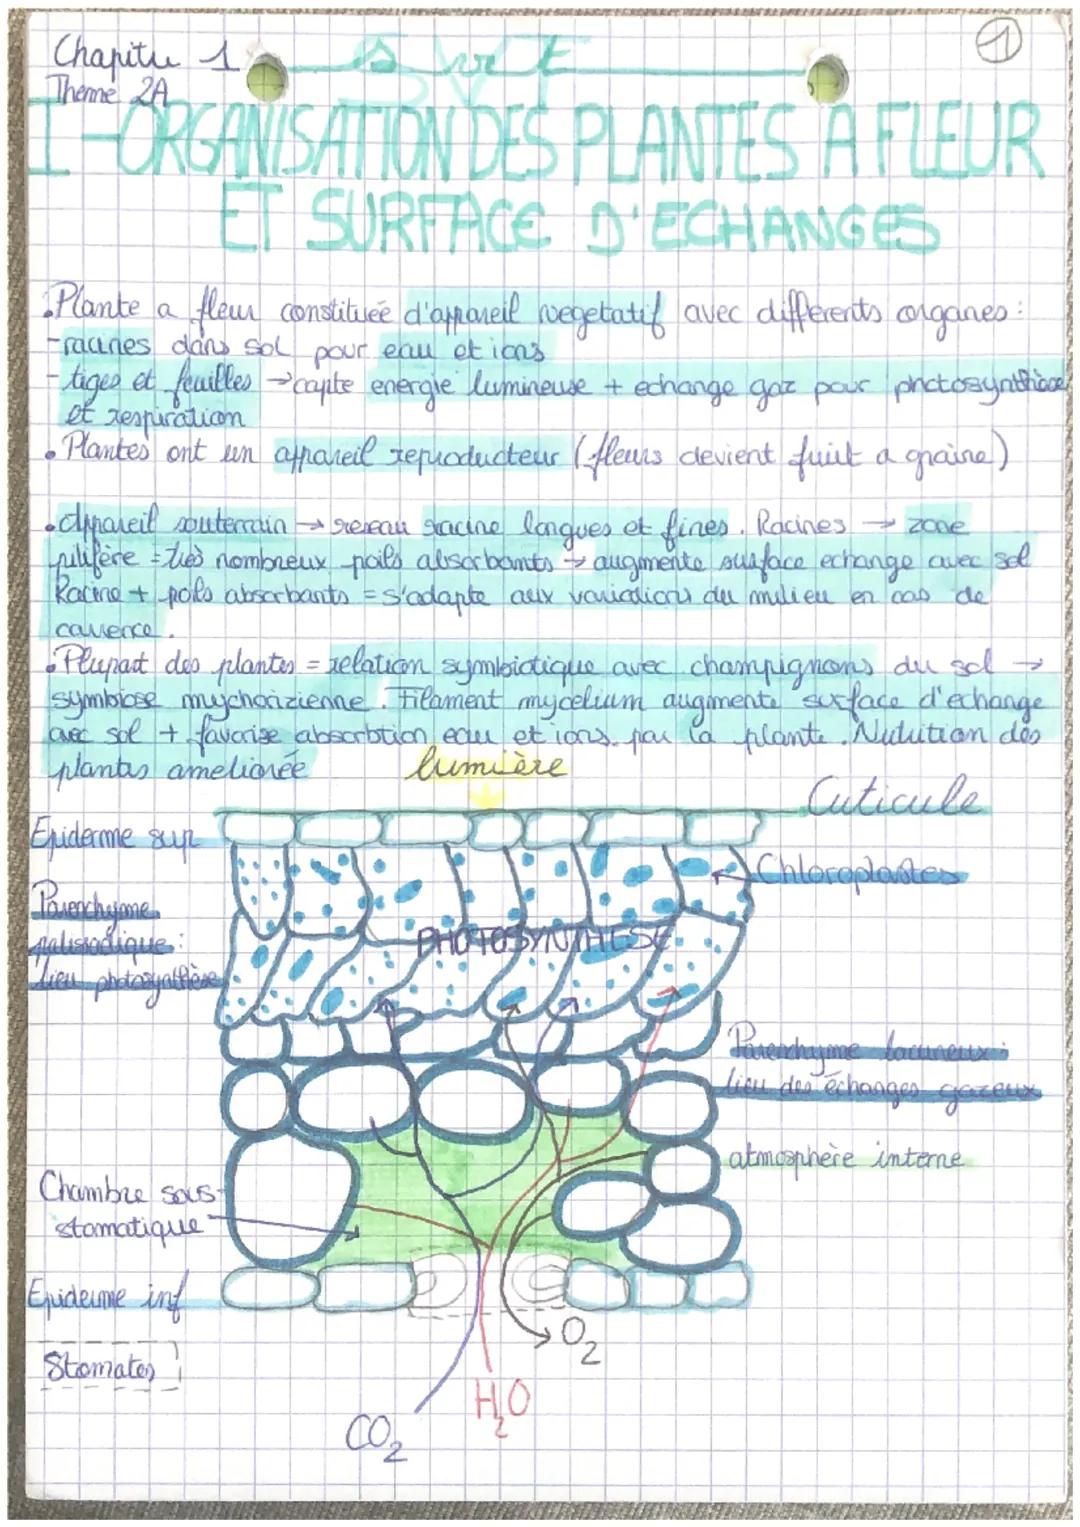 Chapitre 1
Theme 2A
SVT
1
I-ORGANISATION DES PLANTES A FLEUR
ET SURFACE D'ECHANGES
.Plante a fleur constituée d'appareil vegetatif avec differents organes :
-racines dans sol pour eau et ions
- tiges et feuilles → capte energie lumineuse + echange gaz pour photosynthèse
et respiration
. Plantes ont un appareil reproducteur (fleurs devient fruit a graine)
. Appareil souterrain → reseau racine longues et fines. Racines → zone
pilifère = très nombreux poils absorbants → augmente surface echange avec sol
Racine + poils absorbants = s'adapte aux variations du milieu en cas de
carrence.
.Plupart des plantes = relation symbiotique avec champignons du sol →
symbiose mychorizienne. Filament mycelium augmente surface d'echange
avec sol + favorise absorbtion eau et ions par la plante. Nutrition des
plantes ameliorée
lumière
Cuticule
Epiderme sup
Chloroplastes
Parenchyme
palissadique :
lieu photosynthèse
PHOTOSYNTHESE
Parenchyme lacuneux :
lieu des échanges gazeux
atmosphère interne
Chambre sous-
stomatique
Epiderme inf
O2
Stomates
H2O
CO2